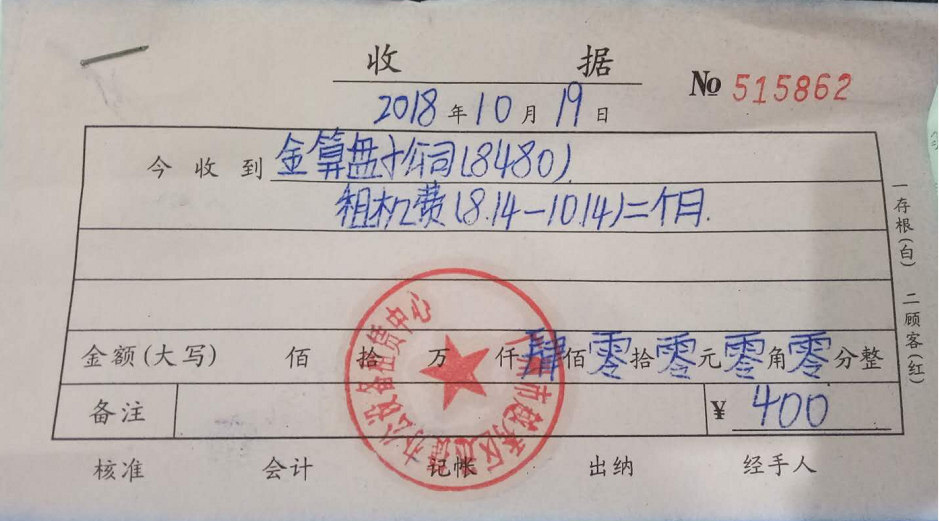 收 据
№ 515862
2018年10月19日
今收到金算盘才公司(8480)
租机费(8.14-10.14)二个月.
金额(大写) 佰 拾 万 仟肆佰零拾零元零角零分整
备注 ¥ 400
核准 会计 记帐 出纳 经手人
一存根(白) 二顾客(红)
办公设备租赁中心